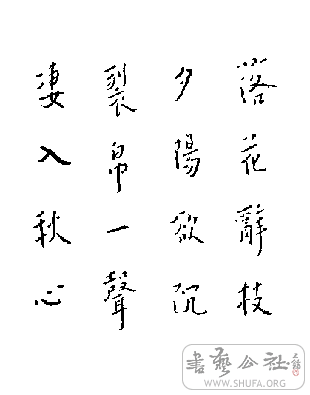 落花辭枝
夕陽欲沉
裂帛一聲
凄入秋心
書藝公社
WWW.SHUFA.ORG